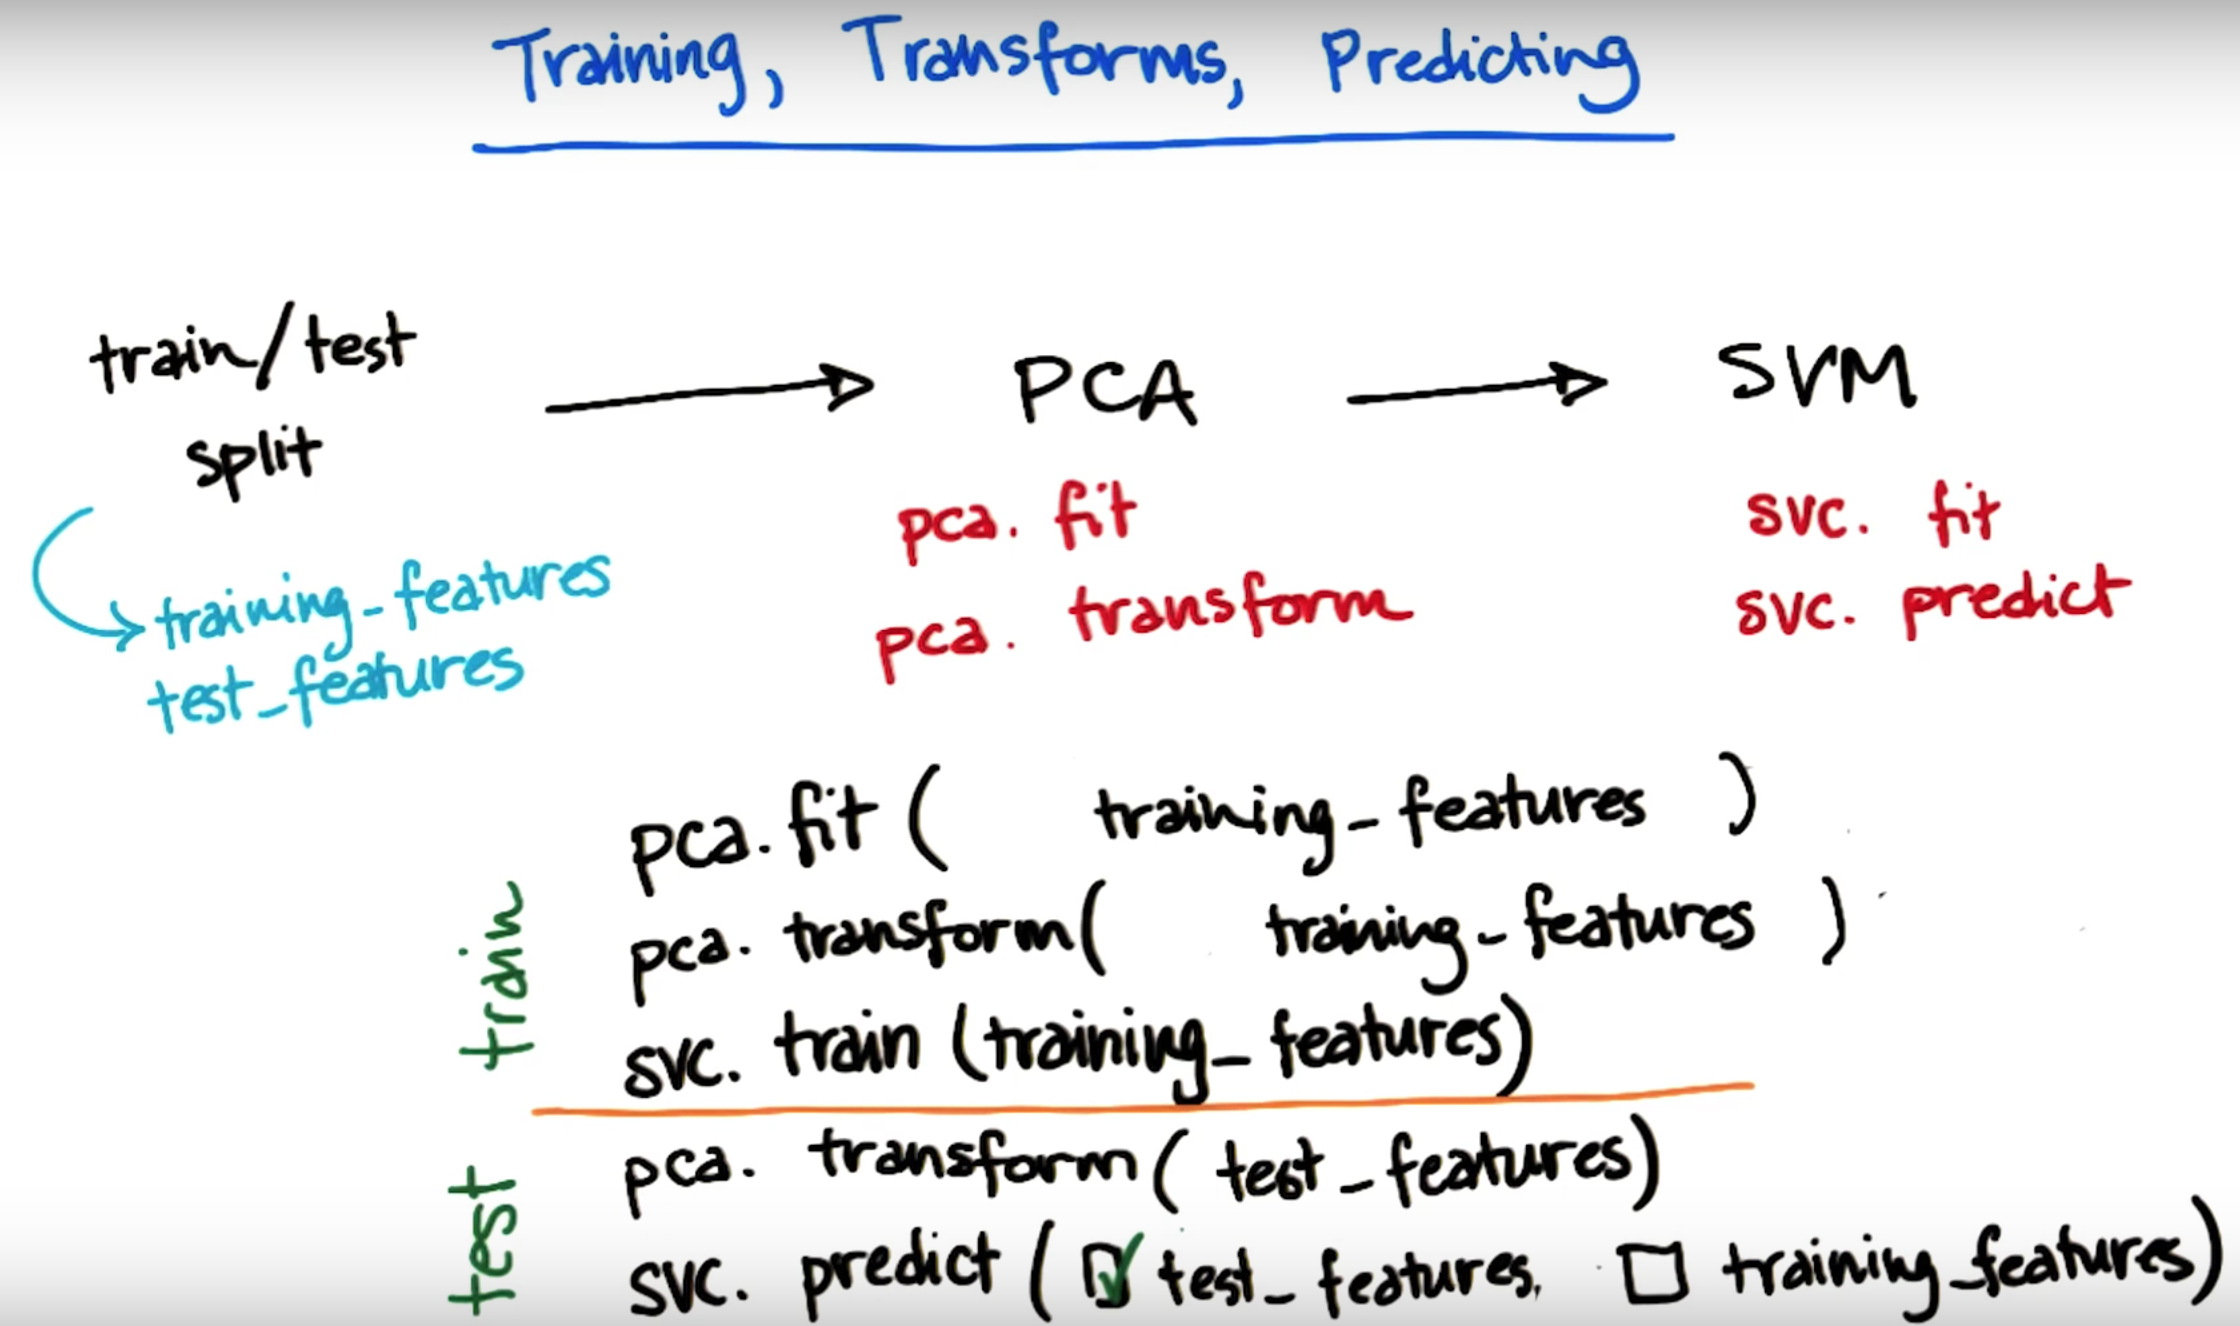 Training, Transforms, Predicting
train/test
split
PCA
SVM
training_features
test_features
pca. fit
pca. transform
svc. fit
svc. predict
train
pca. fit ( training_features )
pca. transform( training_features )
svc. train (training_features)
test
pca. transform( test_features)
svc. predict ( ☑ test_features, ☐ training_features)